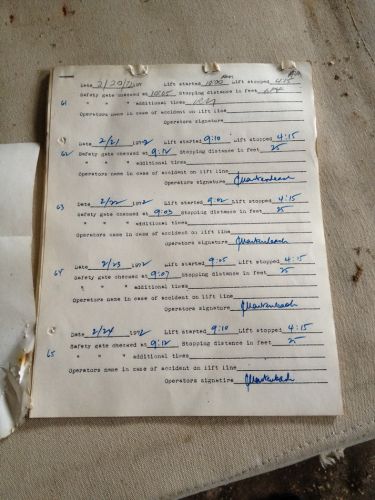 Date 2/20/ Lift started 10:00 Lift stopped 4:15
Safety gate checked at 10:05 Stopping distance in feet
61 " " " additional times
Operators name in case of accident on lift line
Operators signature
Date 2/21 1972 Lift started 9:10 Lift stopped 4:15
62 Safety gate checked at 9:12 Stopping distance in feet 25
" " " additional times
Operators name in case of accident on lift line
Operators signature
63 Date 2/22 1972 Lift started 9:02 Lift stopped 4:15
Safety gate checked at 9:03 Stopping distance in feet 25
" " " additional times
Operators name in case of accident on lift line
Operators signature
64 Date 2/23 1972 Lift started 9:05 Lift stopped 4:15
Safety gate checked at 9:07 Stopping distance in feet 25
" " " additional times
Operators name in case of accident on lift line
Operators signature
Date 2/24 1972 Lift started 9:10 Lift stopped 4:15
Safety gate checked at 9:12 Stopping distance in feet 25
65 " " " additional times
Operators name in case of accident on lift line
Operators signature